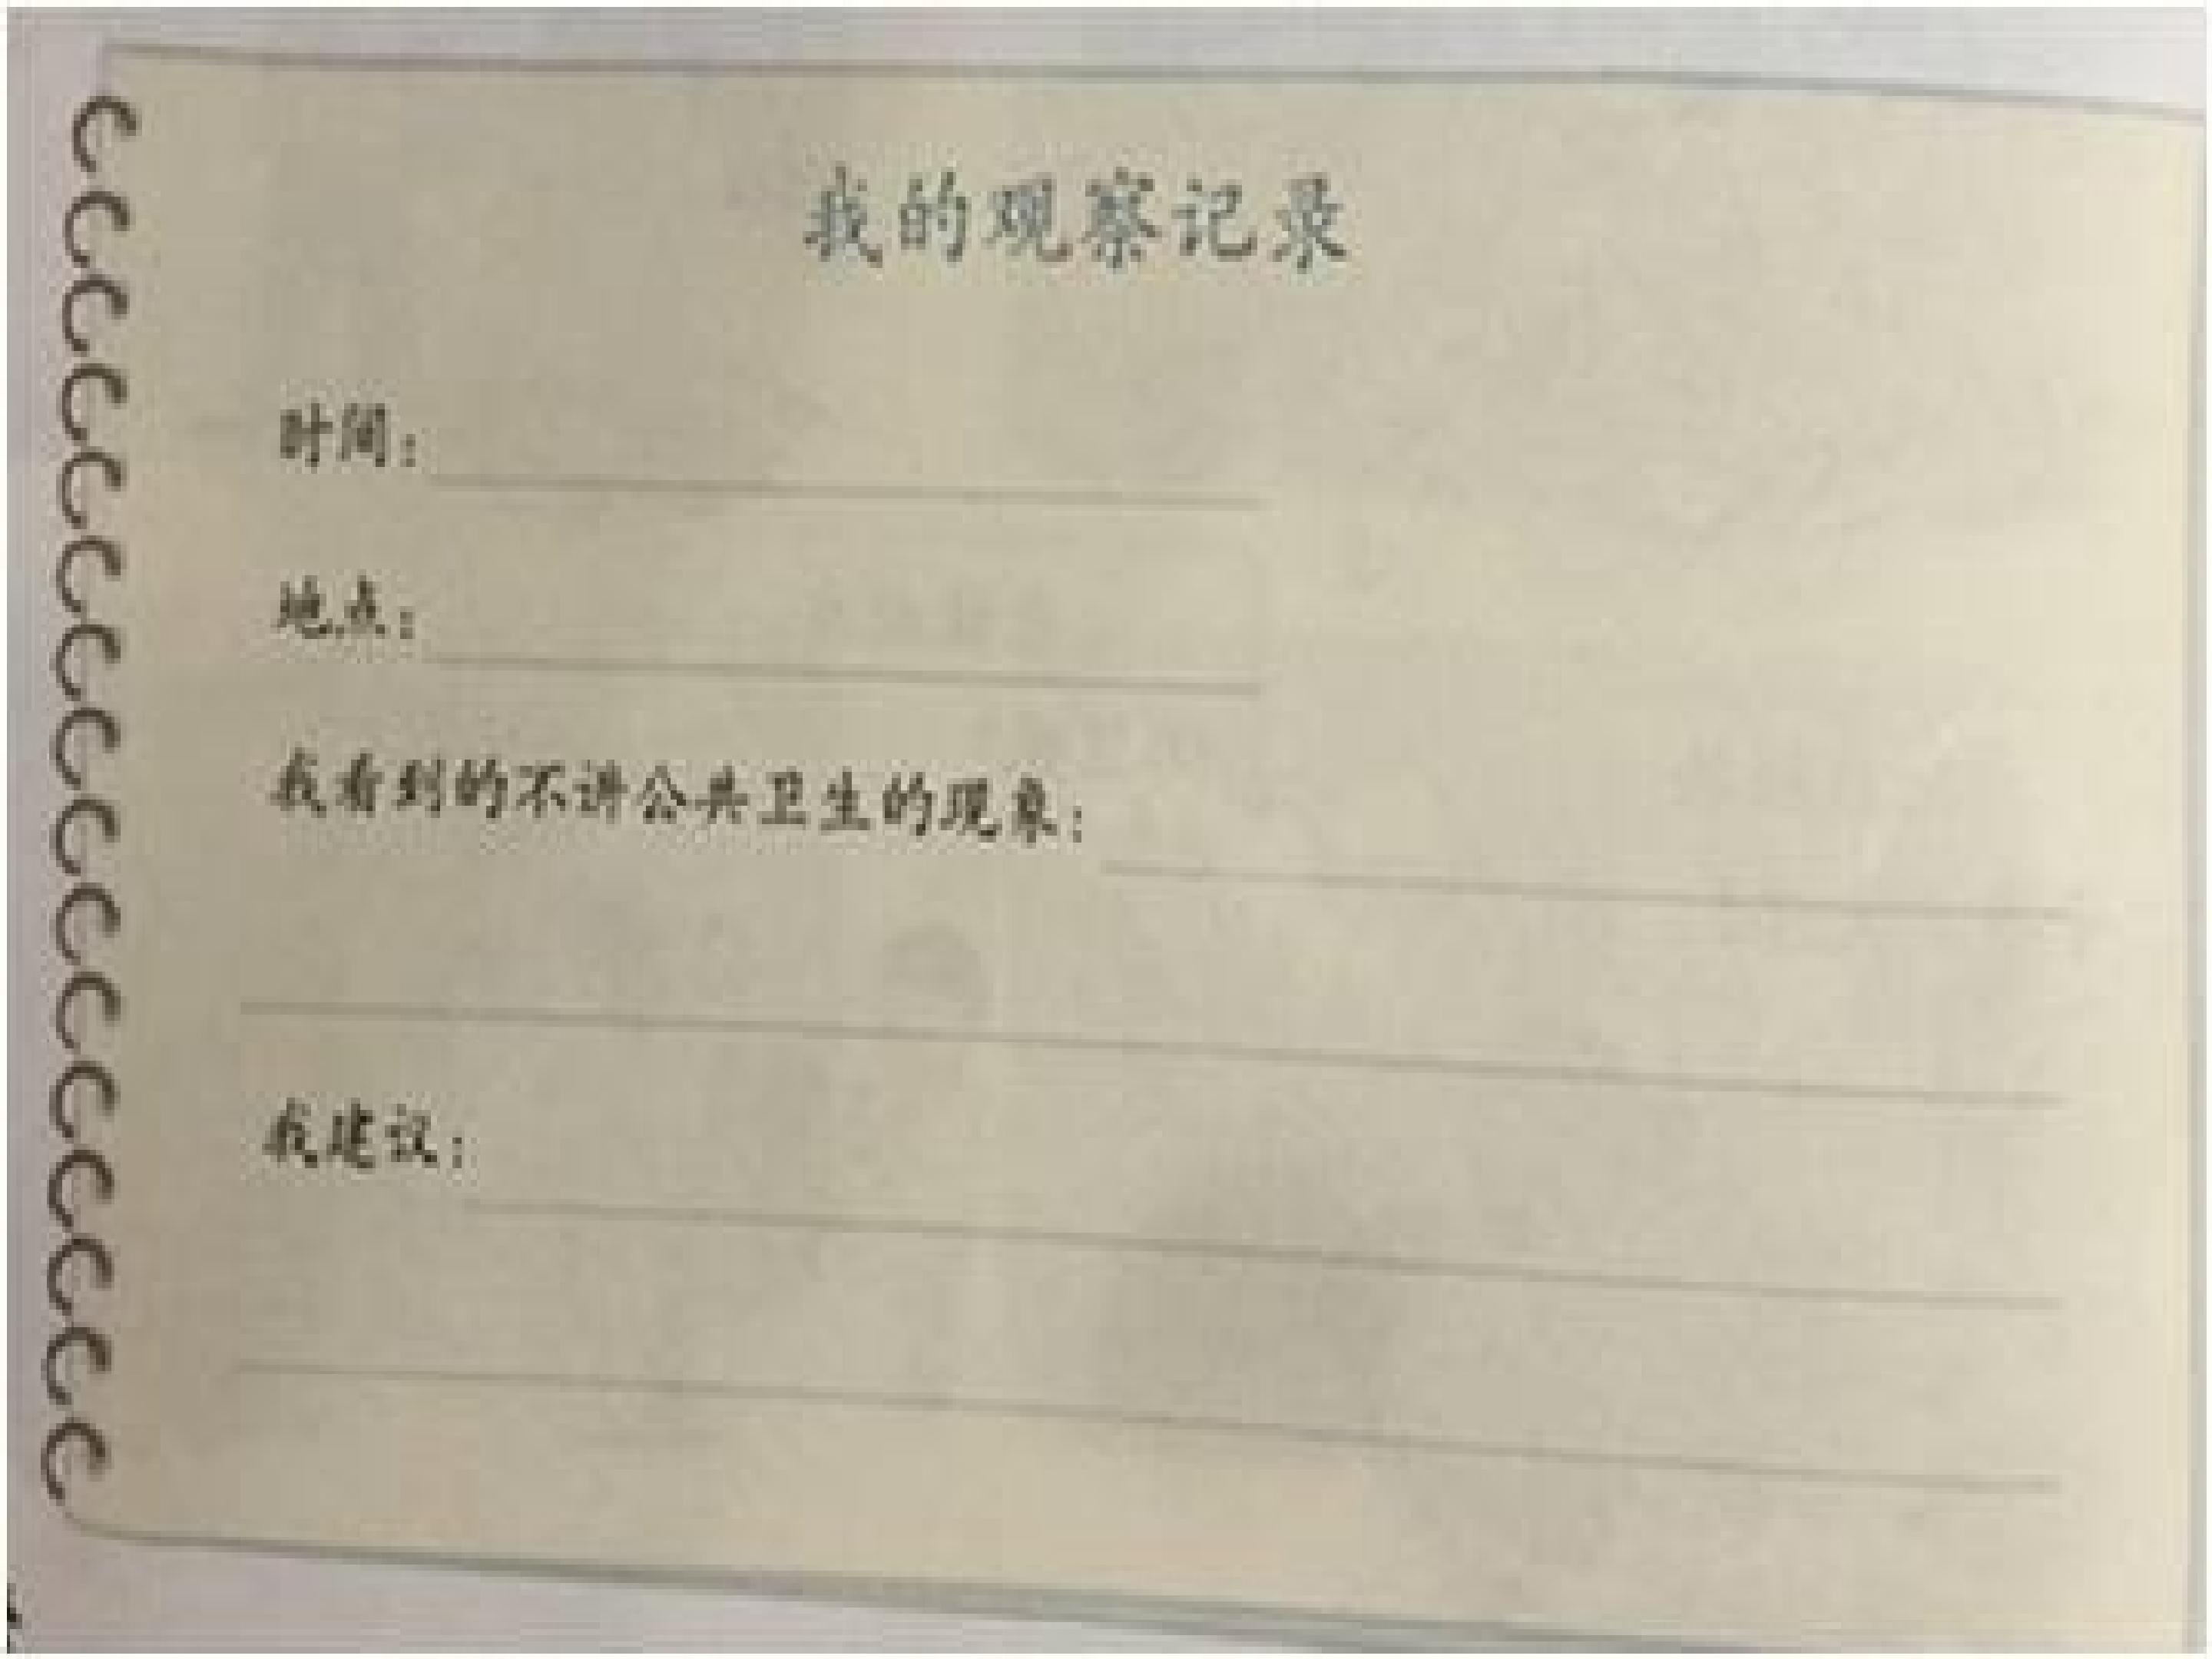 我的观察记录
时间：
地点：
我看到的不讲公共卫生的现象：
我建议：